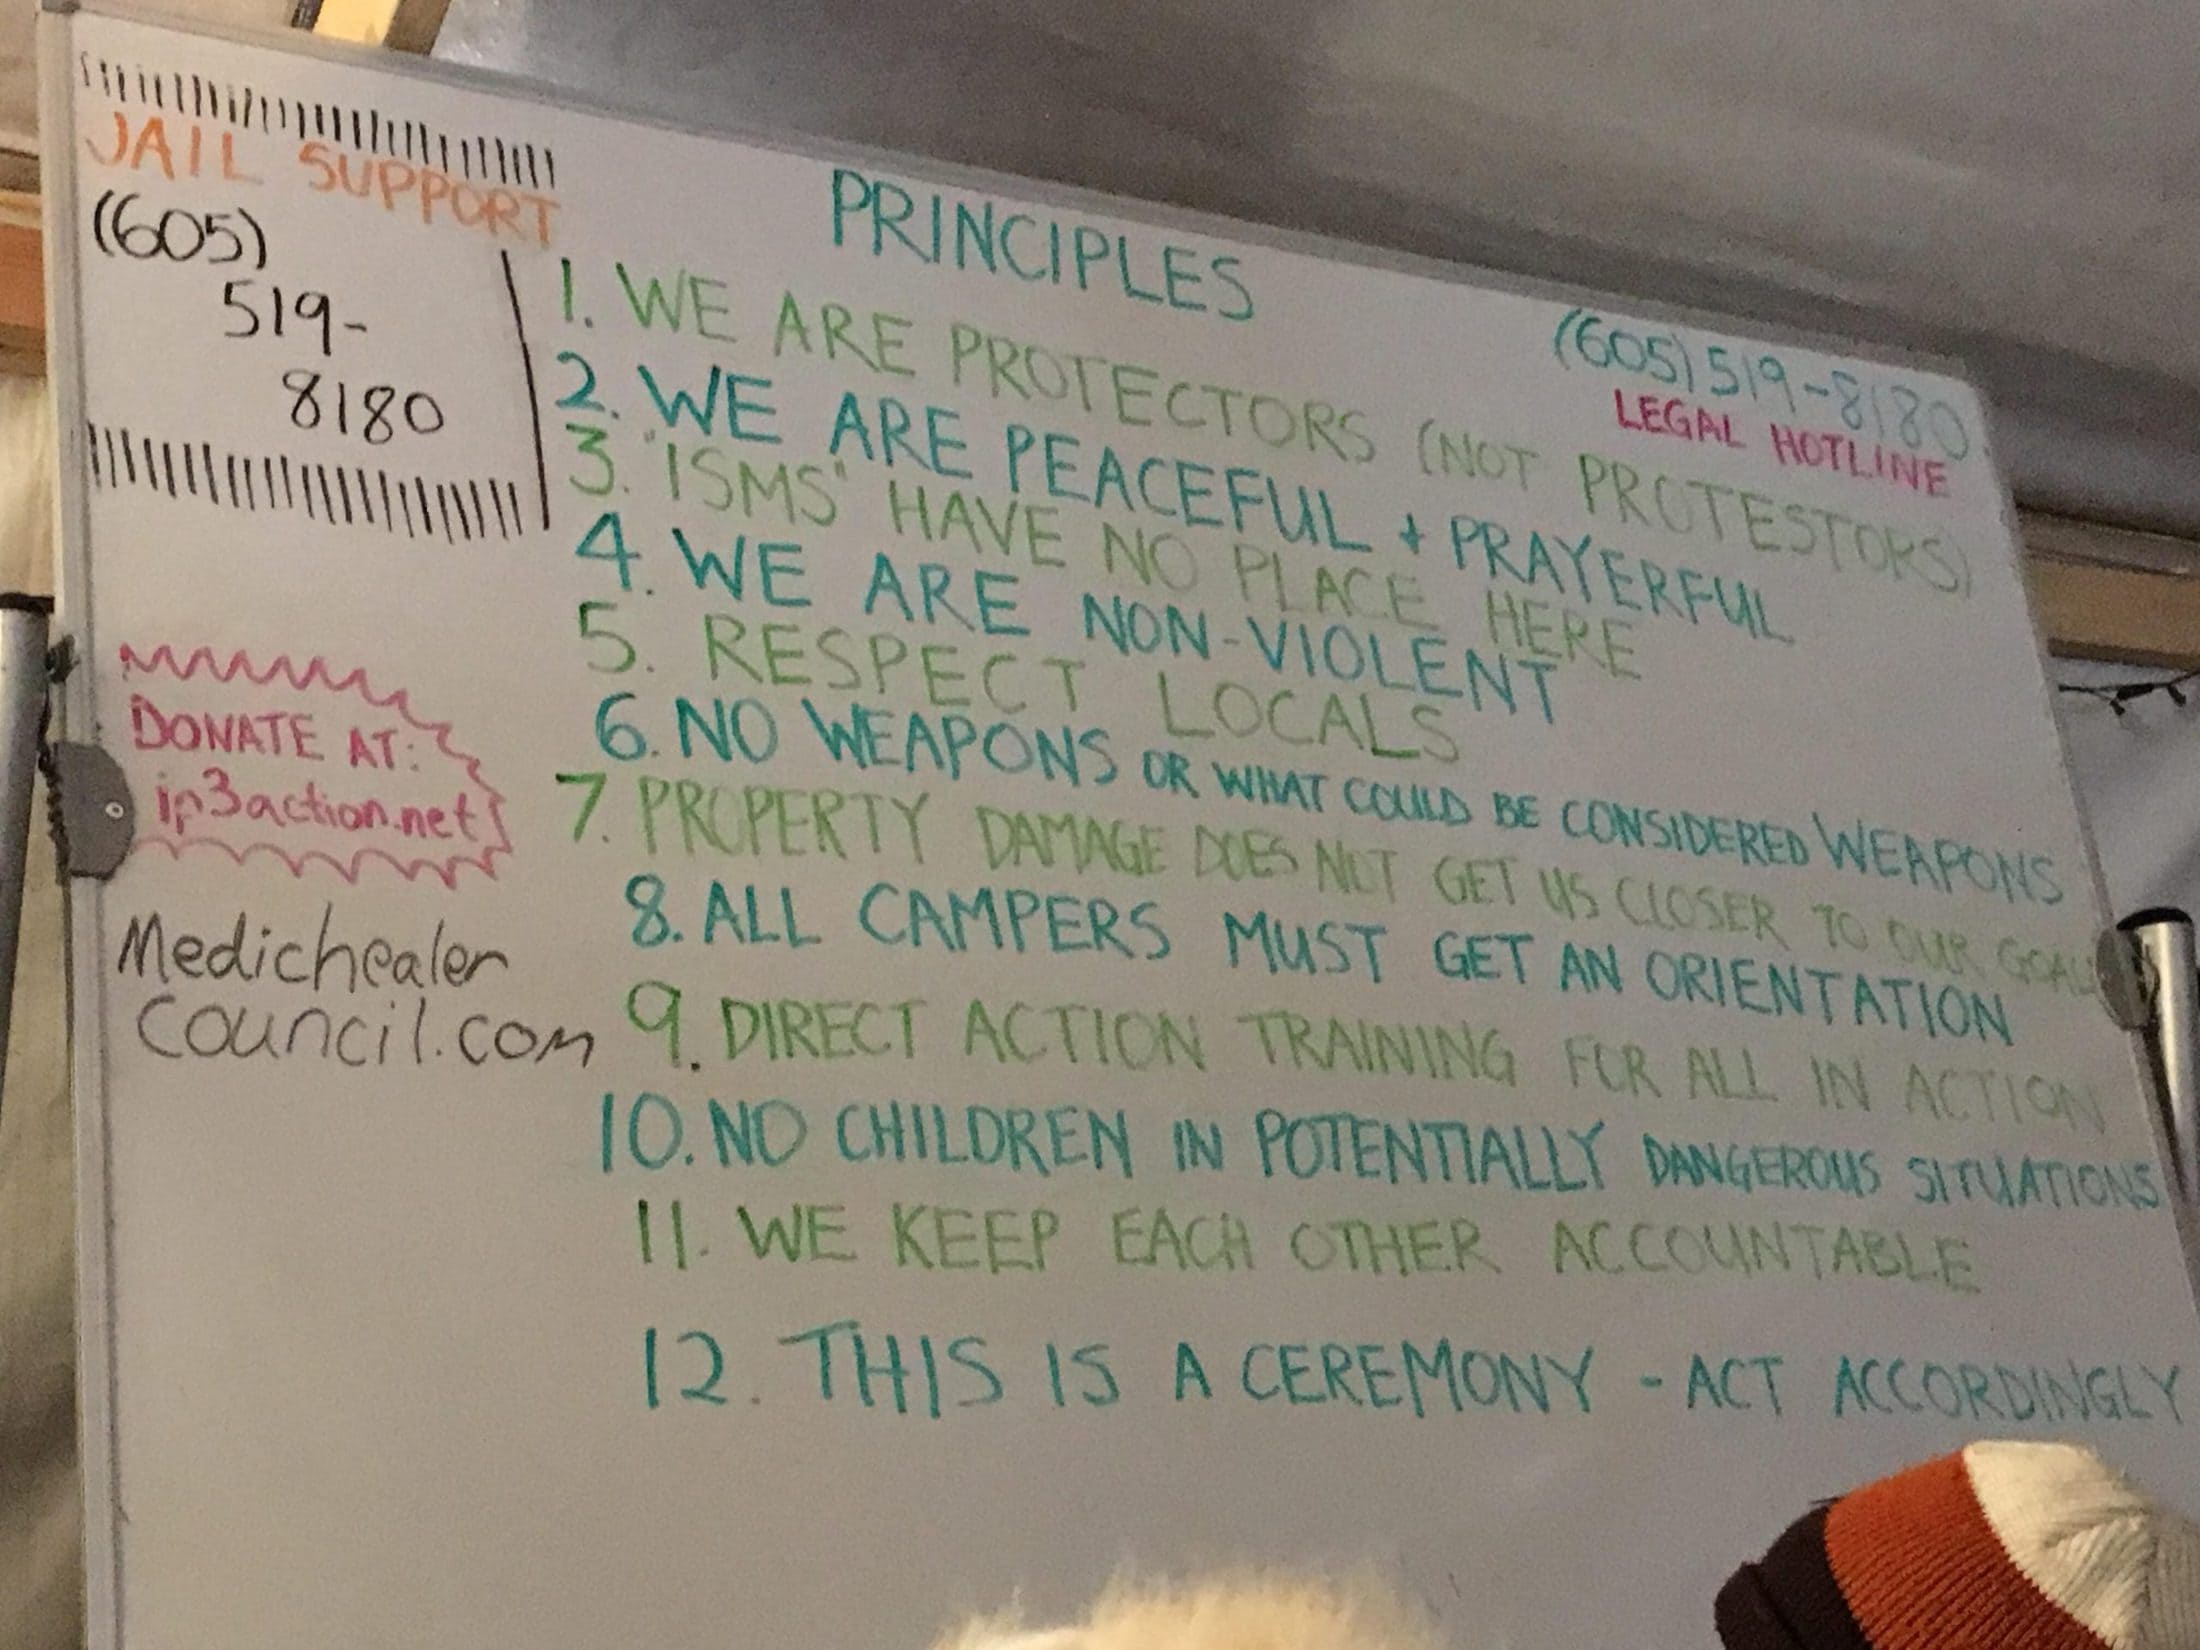 JAIL SUPPORT
(605)
519-
8180
DONATE AT:
ip3action.net
Medichealer
Council.com
PRINCIPLES
(605) 519-8180
LEGAL HOTLINE
1. WE ARE PROTECTORS (NOT PROTESTORS)
2. WE ARE PEACEFUL + PRAYERFUL
3. "ISMS" HAVE NO PLACE HERE
4. WE ARE NON-VIOLENT
5. RESPECT LOCALS
6. NO WEAPONS OR WHAT COULD BE CONSIDERED WEAPONS
7. PROPERTY DAMAGE DOES NOT GET US CLOSER TO OUR GOAL
8. ALL CAMPERS MUST GET AN ORIENTATION
9. DIRECT ACTION TRAINING FOR ALL IN ACTION
10. NO CHILDREN IN POTENTIALLY DANGEROUS SITUATIONS
11. WE KEEP EACH OTHER ACCOUNTABLE
12. THIS IS A CEREMONY - ACT ACCORDINGLY